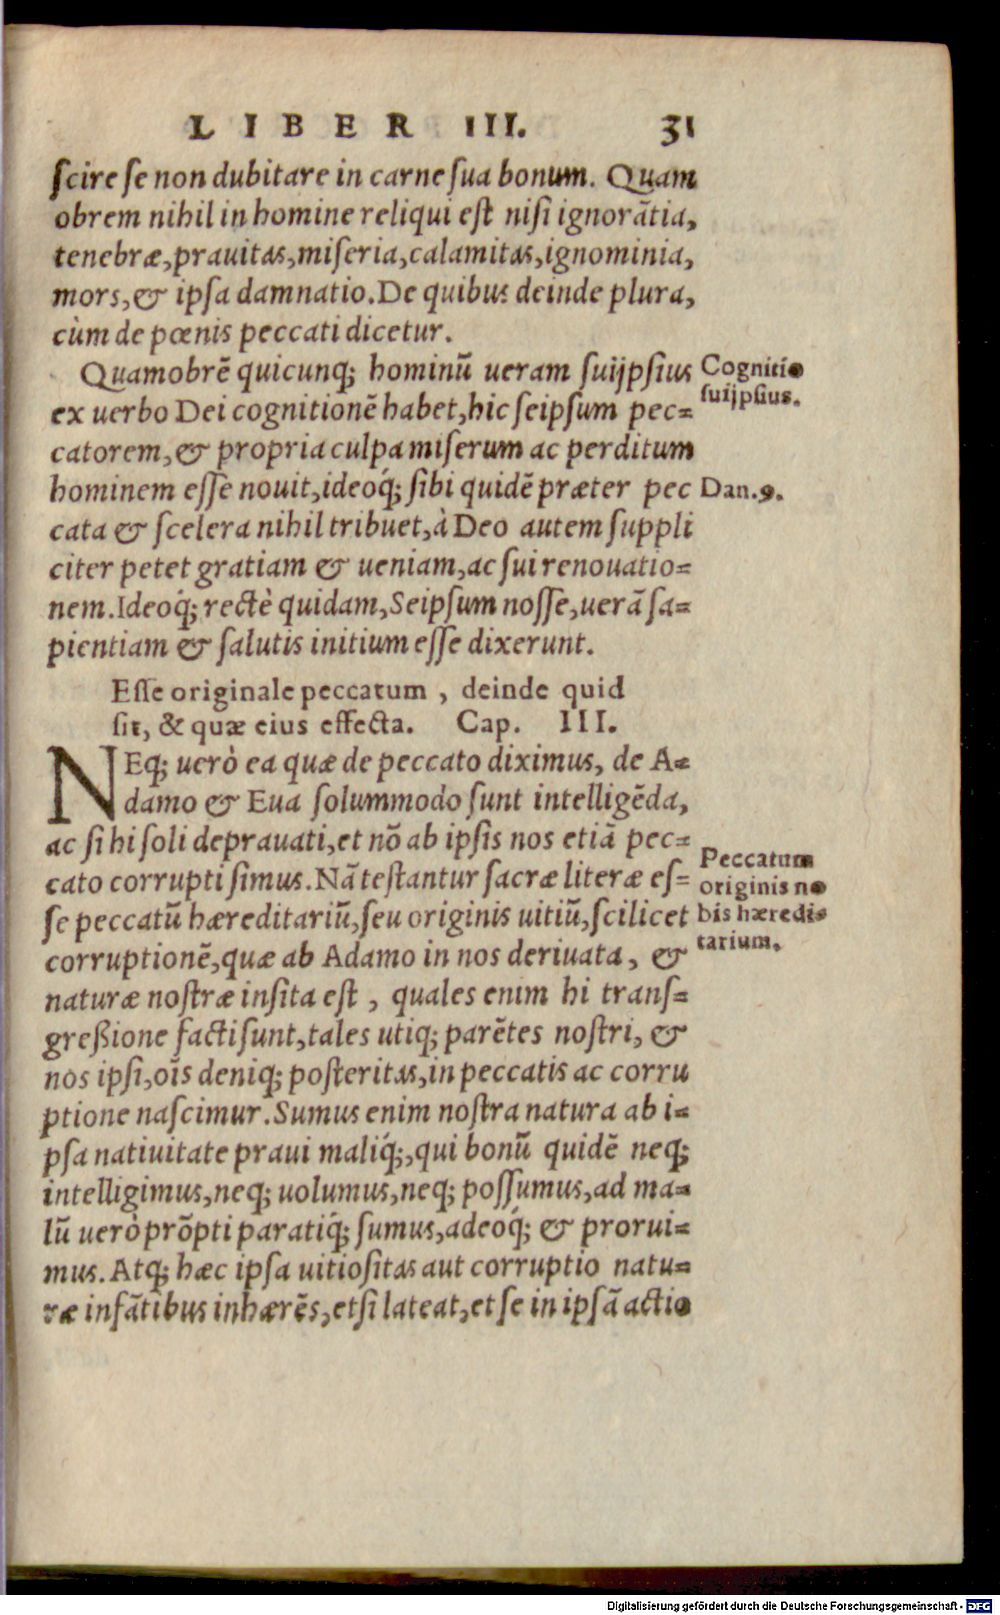 LIBER III. 31
scire se non dubitare in carne sua bonum. Quam
obrem nihil in homine reliqui est nisi ignorãtia,
tenebræ, prauitas, miseria, calamitas, ignominia,
mors, & ipsa damnatio. De quibus deinde plura,
cùm de pœnis peccati dicetur.
Quamobrẽ quicunq; hominũ ueram suijpsius
Cognitio
suijpsius.
ex uerbo Dei cognitionẽ habet, hic seipsum pec=
catorem, & propria culpa miserum ac perditum
hominem esse nouit, ideoq́; sibi quidẽ præter pec
Dan. 9.
cata & scelera nihil tribuet, à Deo autem suppli
citer petet gratiam & ueniam, ac sui renouatio=
nem. Ideoq́; rectè quidam, Seipsum nosse, uerã sa=
pientiam & salutis initium esse dixerunt.
Esse originale peccatum, deinde quid
sit, & quæ eius effecta. Cap. III.
NEq; uerò ea quæ de peccato diximus, de A=
damo & Eua solummodo sunt intelligẽda,
ac si hi soli deprauati, et nõ ab ipsis nos etiã pec=
cato corrupti simus. Nã testantur sacræ literæ es=
se peccatũ hæreditariũ, seu originis uitiũ, scilicet
Peccatum
originis no
bis hæredi=
tarium.
corruptionẽ, quæ ab Adamo in nos deriuata, &
naturæ nostræ insita est, quales enim hi trans=
greßione facti sunt, tales utiq; parẽtes nostri, &
nos ipsi, oĩs deniq; posteritas, in peccatis ac corru
ptione nascimur. Sumus enim nostra natura ab i=
psa natiuitate praui maliq́;, qui bonũ quidẽ neq;
intelligimus, neq; uolumus, neq; possumus, ad ma=
lũ uerò prõpti paratiq́; sumus, adeoq́; & prorui=
mus. Atq; hæc ipsa uitiositas aut corruptio natu=
ræ infãtibus inhærẽs, etsi lateat, et se in ipsã actio
Digitalisierung gefördert durch die Deutsche Forschungsgemeinschaft - DFG